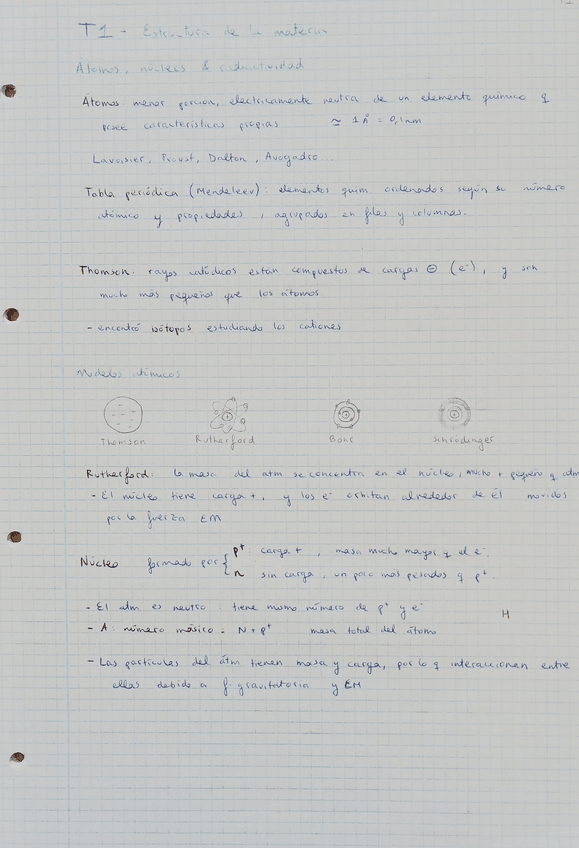 T1 - Estructura de la materia
Átomos, núcleos & radiactividad
Átomos: menor porcion, electricamente neutra de un elemento químico q
posee características propias ≃ 1 Å = 0,1 nm
Lavoisier, Proust, Dalton, Avogadro...
Tabla periódica (Mendeleev): elementos quim ordenados según su número
atómico y propiedades, agrupados en filas y columnas.
Thomson: rayos catódicos están compuestos de cargas ⊖ (e⁻), y son
mucho más pequeños que los átomos
- encontró isótopos estudiando los cationes
Modelos atómicos
Thomson Rutherford Bohr Schrödinger
Rutherford: la masa del atm se concentra en el núcleo, mucho + pequeño q atm
- El núcleo tiene carga +, y los e⁻ orbitan alrededor de él movidos
por la fuerza EM
Núcleo formado por { p⁺ carga +, masa mucho mayor q el e⁻
n sin carga, un poco más pesados q p⁺
- El atm es neutro: tiene mismo número de p⁺ y e⁻ H
- A: número másico = N + p⁺ masa total del átomo
- Las partículas del átm tienen masa y carga, por lo q interaccionan entre
ellas debido a f. gravitatoria y EM